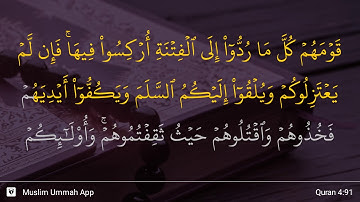 قَوۡمَهُمۡ كُلَّ مَا رُدُّوٓاْ إِلَى ٱلۡفِتۡنَةِ أُرۡكِسُواْ فِيهَاۚ فَإِن لَّمۡ
يَعۡتَزِلُوكُمۡ وَيُلۡقُوٓاْ إِلَيۡكُمُ ٱلسَّلَمَ وَيَكُفُّوٓاْ أَيۡدِيَهُمۡ
فَخُذُوهُمۡ وَٱقۡتُلُوهُمۡ حَيۡثُ ثَقِفۡتُمُوهُمۡۚ وَأُوْلَـٰٓئِكُمۡ
Muslim Ummah App
Quran 4:91